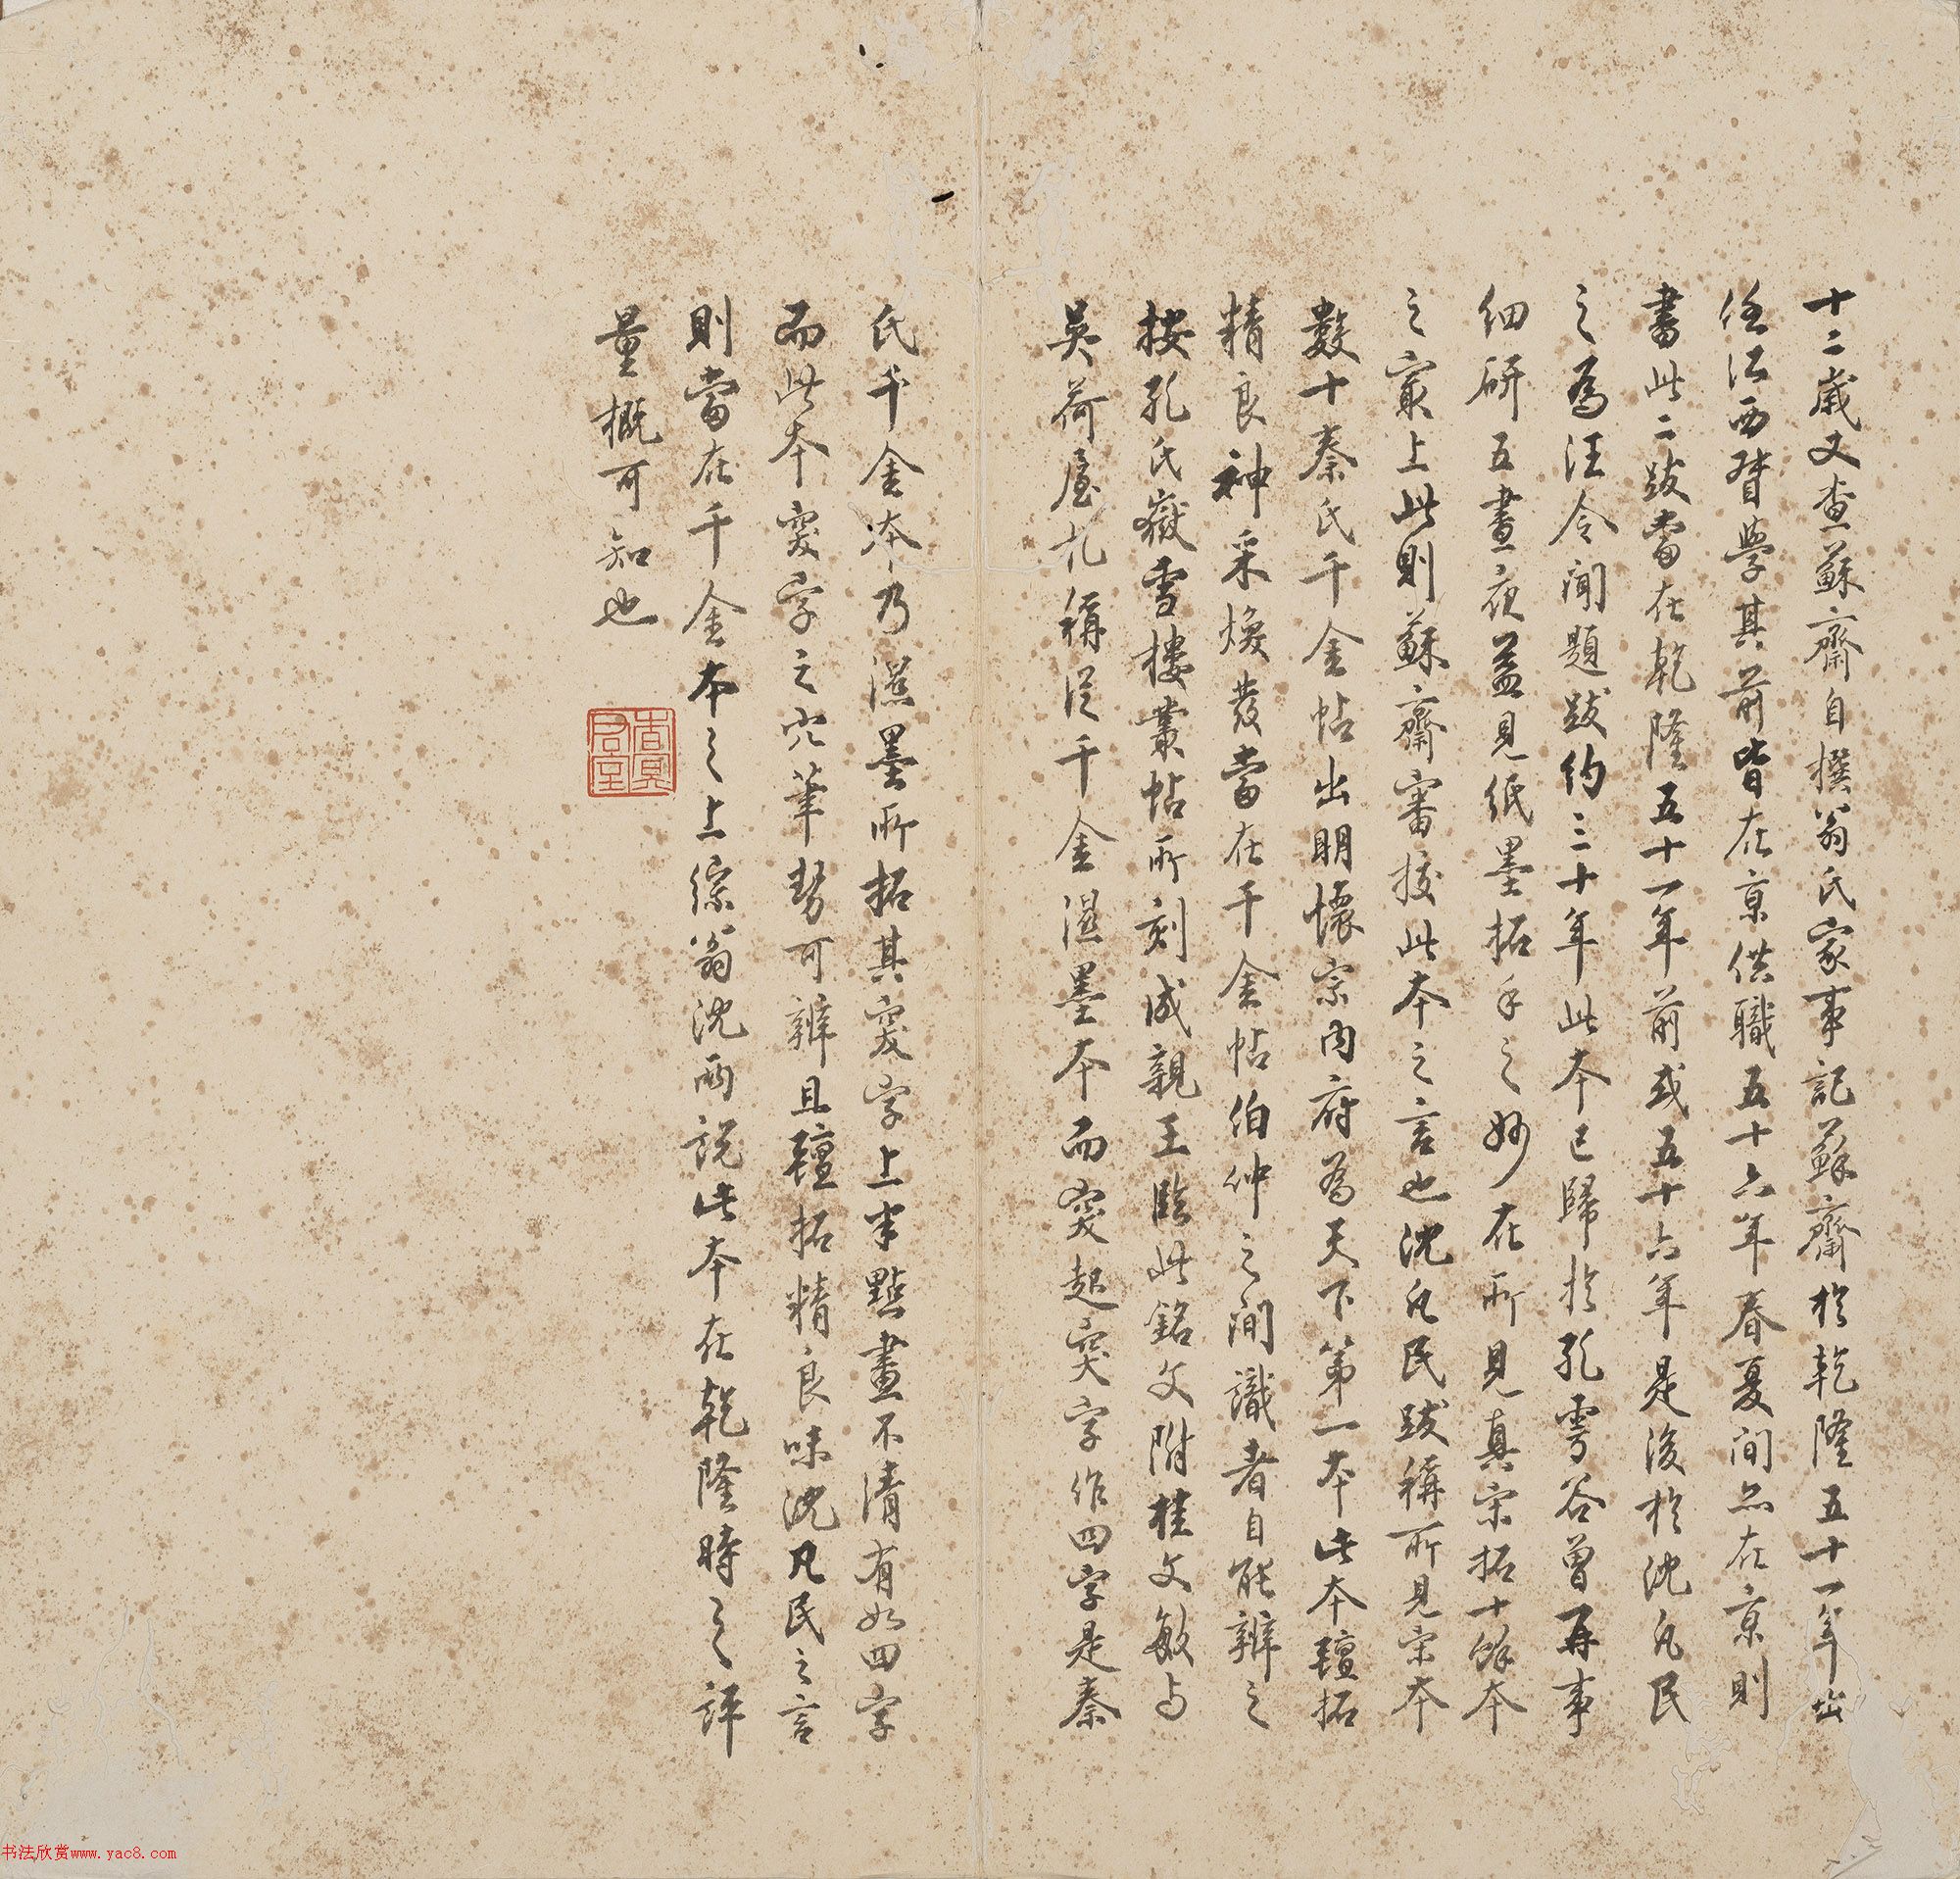 十二歲又查蘇齋自撰翁氏家事記蘇齋於乾隆五十一年出
任江西督學其前皆在京供職五十六年春夏間亦在京則
書此二跋當在乾隆五十一年前或五十六年是後於沈凡民
之為汪令聞題跋約三十年此本已歸於孔雩谷曾再事
細研五晝夜益見紙墨拓手之妙在所見真宋拓十餘本
之最上此則蘇齋審挍此本之言也沈凡民跋稱所見宋本
數十秦氏千金帖出明懷宗內府為天下第一本此本氊拓
精良神采煥發當在千金帖伯仲之間識者自能辨之
按孔氏嶽雪樓叢帖所刻成親王臨此銘文附桂文敏与
吳荷屋札稱從千金濕墨本而突起突字作四字是秦
氏千金本乃濕墨所拓其突字上半點畫不清有如四字
而此本突字之穴筆勢可辨且氊拓精良味沈凡民之言
則當在千金本之上綜翁沈兩說此本在乾隆時之評
量概可知也
书法欣赏www.yac8.com